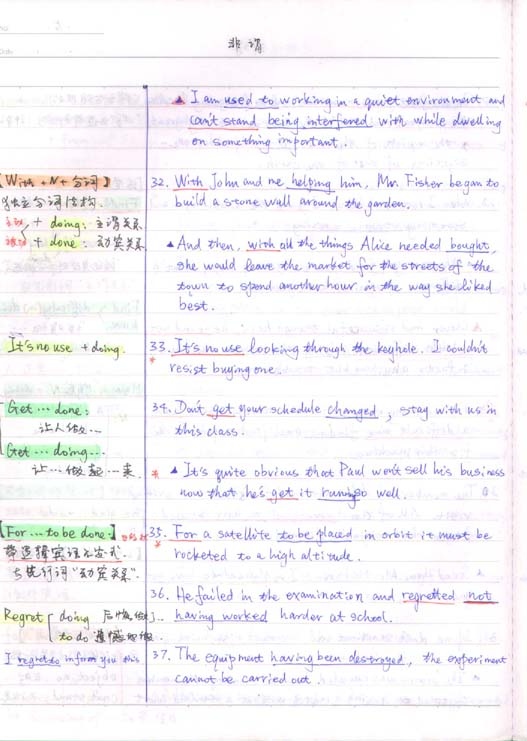 非谓
▲ I am used to working in a quiet environment and
can't stand being interfered with while dwelling
on something important.
【With + N + 分词】
独立分词结构.
主动 + doing: 主谓关系
被动 + done: 动宾关系
32. With John and me helping him, Mr. Fisher began to
build a stone wall around the garden.
▲ And then, with all the things Alice needed bought,
she would leave the market for the streets of the
town to spend another hour in the way she liked
best.
It's no use + doing.
33. It's no use looking through the keyhole. I couldn't
* resist buying one.
Get ... done:
让人做...
Get ... doing...
让...做起...来.
34. Don't get your schedule changed, stay with us in
this class.
* ▲ It's quite obvious that Paul won't sell his business
now that he's get it running so well.
【For ... to be done.】
与先行词"动宾关系".
35. For a satellite to be placed in orbit it must be
* rocketed to a high altitude.
Regret doing 后悔做了..
to do 遗憾地做.
I regret to inform you this
36. He failed in the examination and regretted not
having worked harder at school.
37. The equipment having been destroyed, the experiment
cannot be carried out.